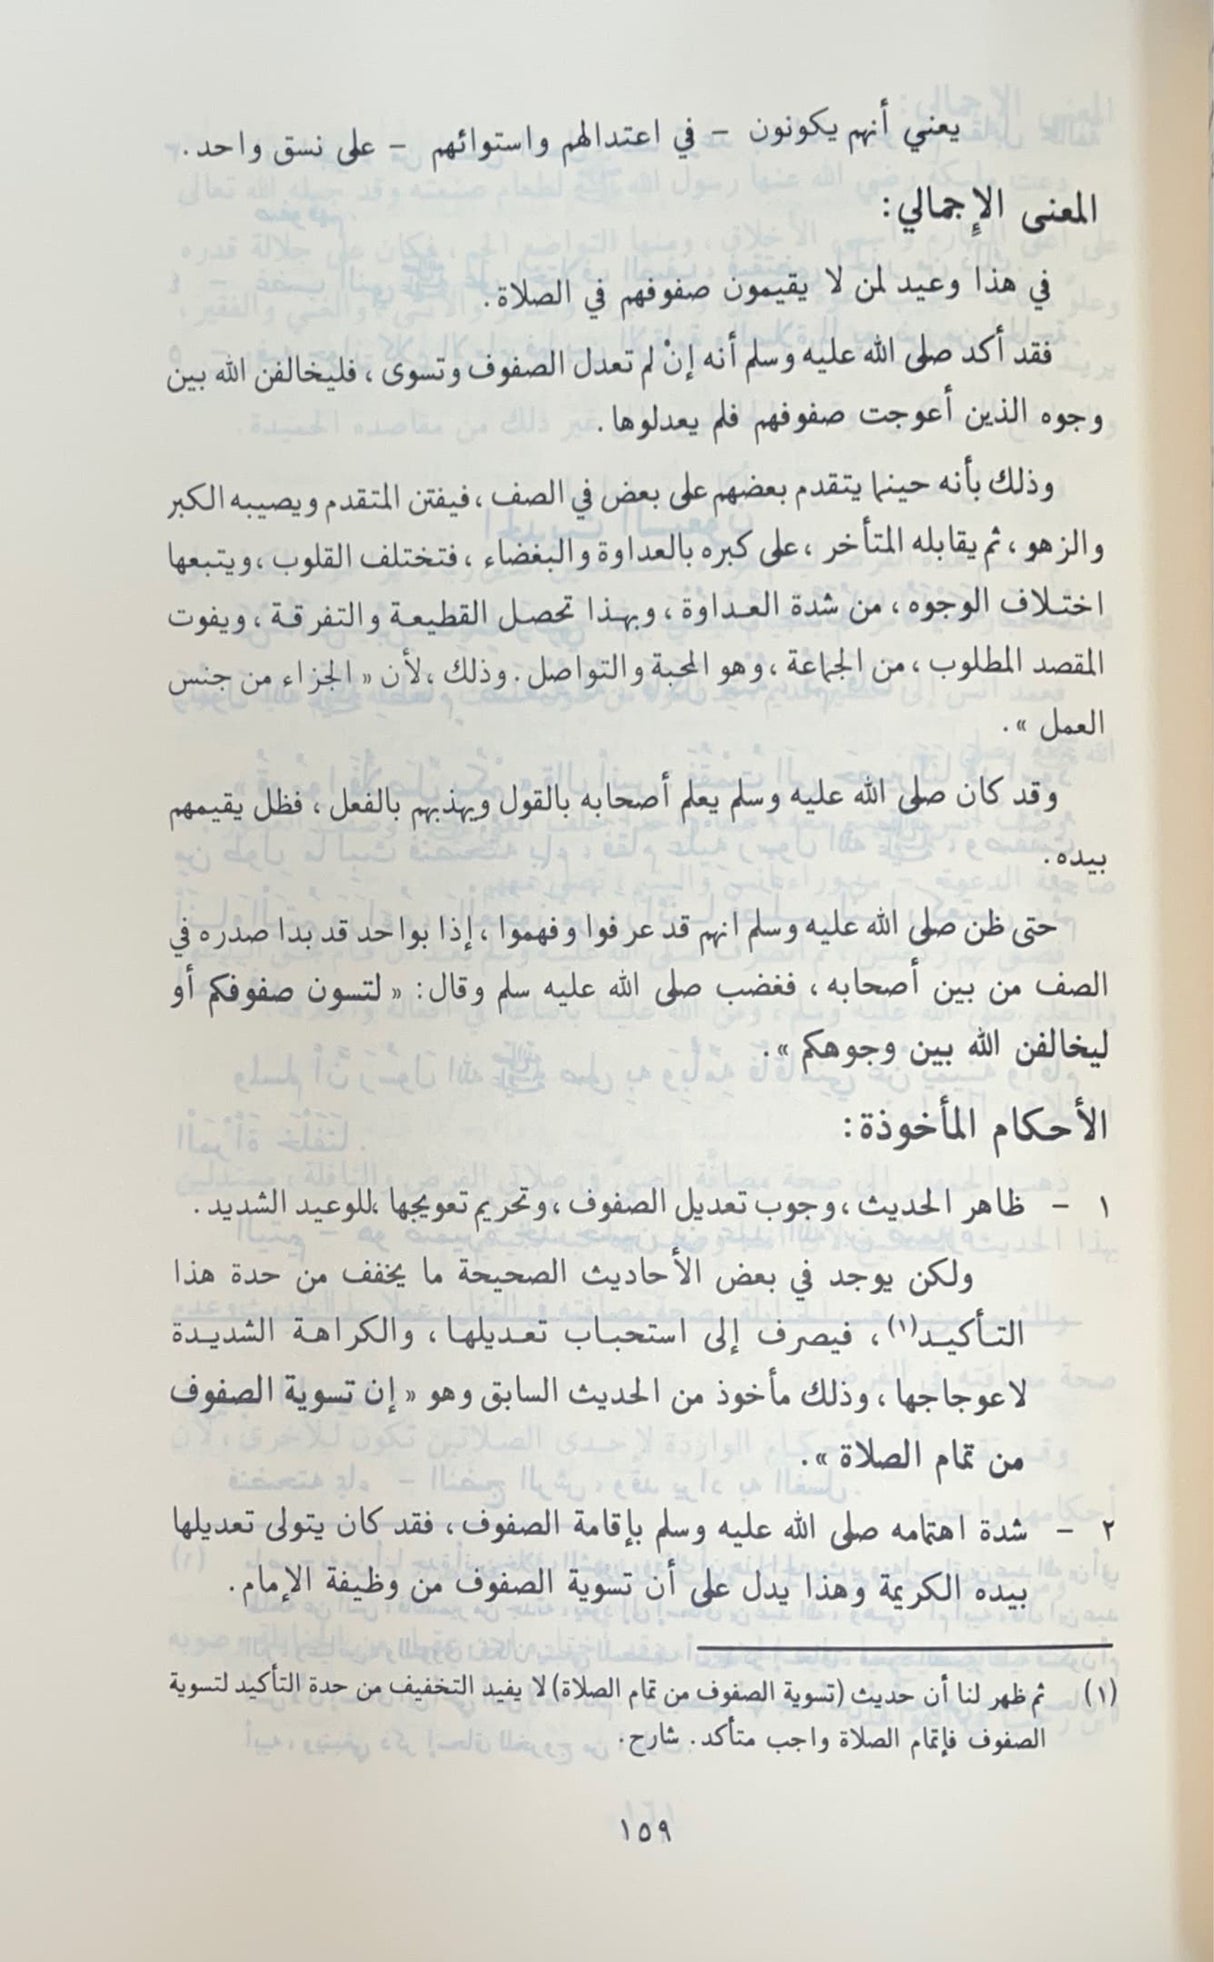 يعني أنهم يكونون – في اعتدالهم واستوائهم – على نسق واحد.
المعنى الإجمالي:
في هذا وعيد لمن لا يقيمون صفوفهم في الصلاة.
فقد أكد صلى الله عليه وسلم أنه إنْ لم تعدل الصفوف وتسوى، فليخالفن الله بين
وجوه الذين أعوجت صفوفهم فلم يعدلوها.
وذلك بأنه حينما يتقدم بعضهم على بعض في الصف، فيفتن المتقدم ويصيبه الكبر
والزهو، ثم يقابله المتأخر، على كبره بالعداوة والبغضاء، فتختلف القلوب، ويتبعها
اختلاف الوجوه، من شدة العداوة، وبهذا تحصل القطيعة والتفرقة، ويفوت
المقصد المطلوب، من الجماعة، وهو المحبة والتواصل. وذلك، لأن « الجزاء من جنس
العمل ».
وقد كان صلى الله عليه وسلم يعلم أصحابه بالقول ويهذبهم بالفعل، فظل يقيمهم
بيده.
حتى ظن صلى الله عليه وسلم انهم قد عرفوا وفهموا، إذا بواحد قد بدا صدره في
الصف من بين أصحابه، فغضب صلى الله عليه سلم وقال: « لتسون صفوفكم أو
ليخالفن الله بين وجوهكم ».
الأحكام المأخوذة:
١ – ظاهر الحديث، وجوب تعديل الصفوف، وتحريم تعويجها، للوعيد الشديد.
ولكن يوجد في بعض الأحاديث الصحيحة ما يخفف من حدة هذا
التأكيد(١)، فيصرف إلى استحباب تعديلها، والكراهة الشديدة
لاعوجاجها، وذلك مأخوذ من الحديث السابق وهو « إن تسوية الصفوف
من تمام الصلاة ».
٢ – شدة اهتمامه صلى الله عليه وسلم بإقامة الصفوف، فقد كان يتولى تعديلها
بيده الكريمة وهذا يدل على أن تسوية الصفوف من وظيفة الإمام.
(١) ثم ظهر لنا أن حديث (تسوية الصفوف من تمام الصلاة) لا يفيد التخفيف من حدة التأكيد لتسوية
الصفوف فإتمام الصلاة واجب متأكد. شارح.
١٥٩